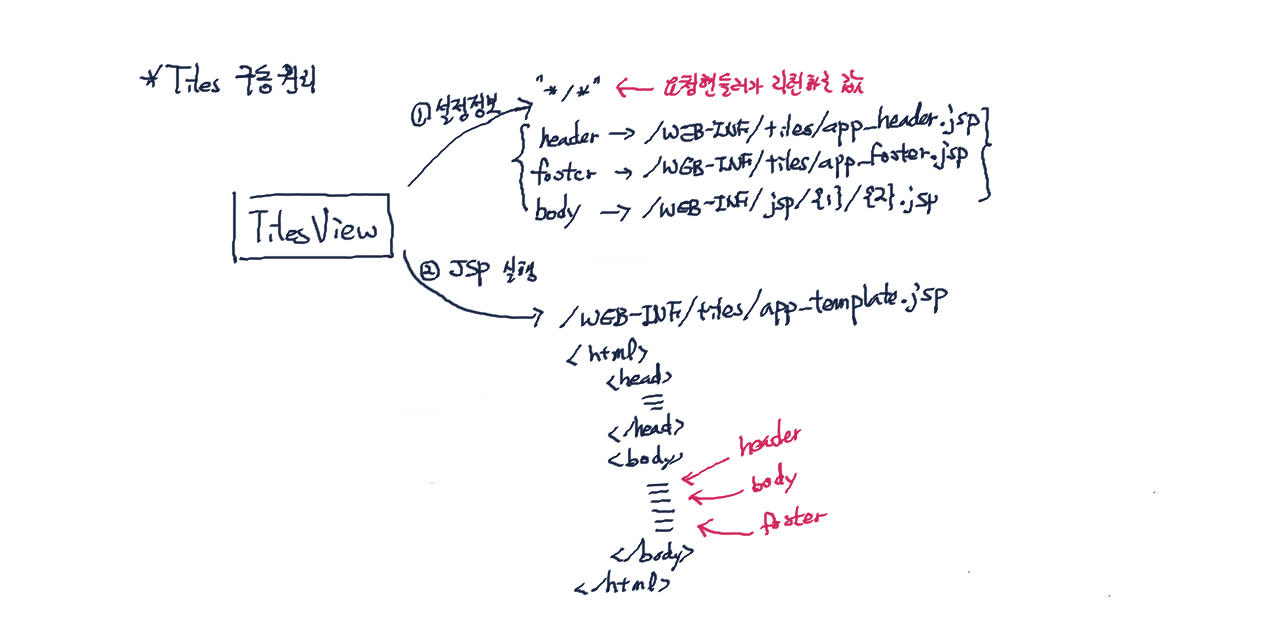 *Tiles 구동원리
① 설정정보
"*/*" ← 요청핸들러가 리턴하는 값
header → /WEB-INF/tiles/app_header.jsp
footer → /WEB-INF/tiles/app_footer.jsp
body → /WEB-INF/jsp/{1}/{2}.jsp
TilesView
② JSP 실행
/WEB-INF/tiles/app-template.jsp
<html>
<head>
</head>
<body>
header
body
footer
</body>
</html>